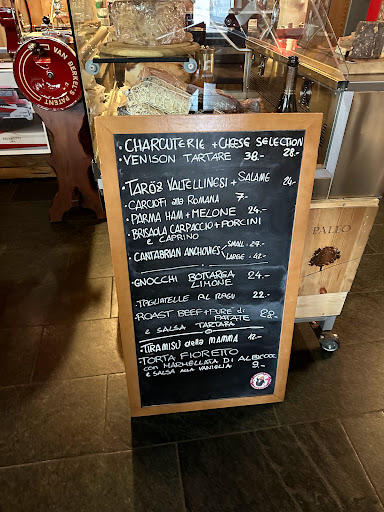 VAN BERKEL'S PATENT
• CHARCUTERIE + CHEESE SELECTION 28.-
• VENISON TARTARE 38.-
• TARÖZ VALTELLINESI + SALAME 24.-
• CARCIOFI alla ROMANA 7.-
• PARMA HAM + MELONE 24.-
• BRISAOLA CARPACCIO + PORCINI
e CAPRINO
• CANTABRIAN ANCHOVIES SMALL 27.-
LARGE 42.-
• GNOCCHI BOTTARGA 24.-
LIMONE
• TAGLIATELLE AL RAGU 22.-
• ROAST BEEF + PURE di 28.-
PATATE
e SALSA TARTARA
• TIRAMISÙ della MAMMA 12.-
• TORTA FIORETTO
CON MARMELLATA DI ALBICOCC
e SALSA ALLA VANIGLIA 9.-
PALEO